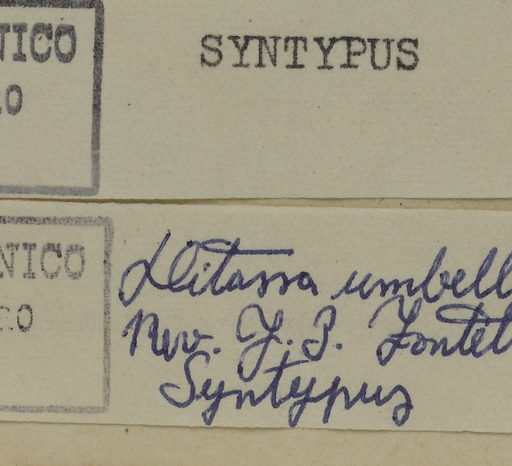 NICO
SYNTYPUS
NICO
Ditassa umbell
Rev. J. P. Fontel
Syntypus